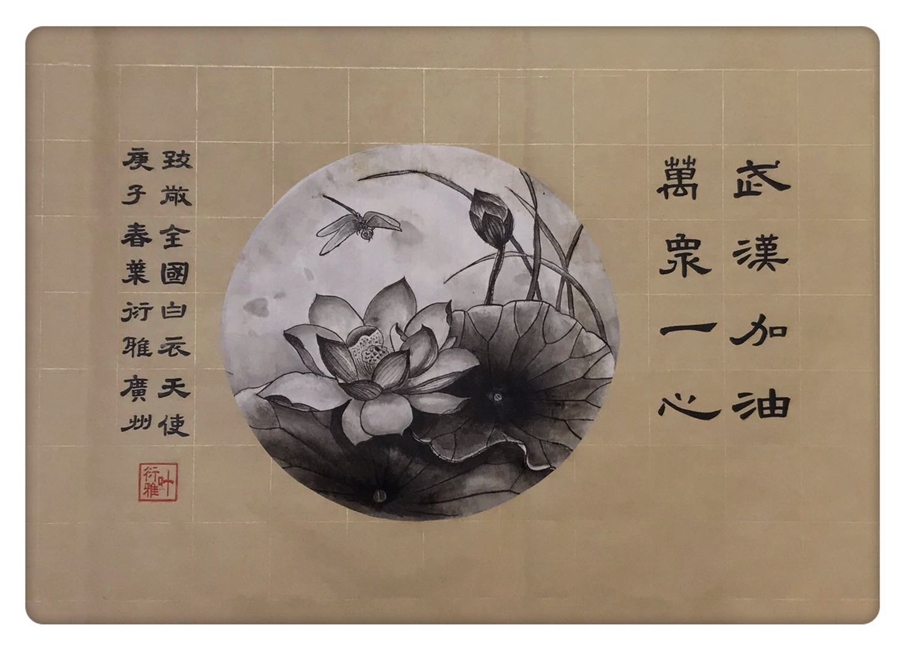 武漢加油
萬衆一心
致敬全國白衣天使
庚子春葉衍雅廣州
叶衍雅